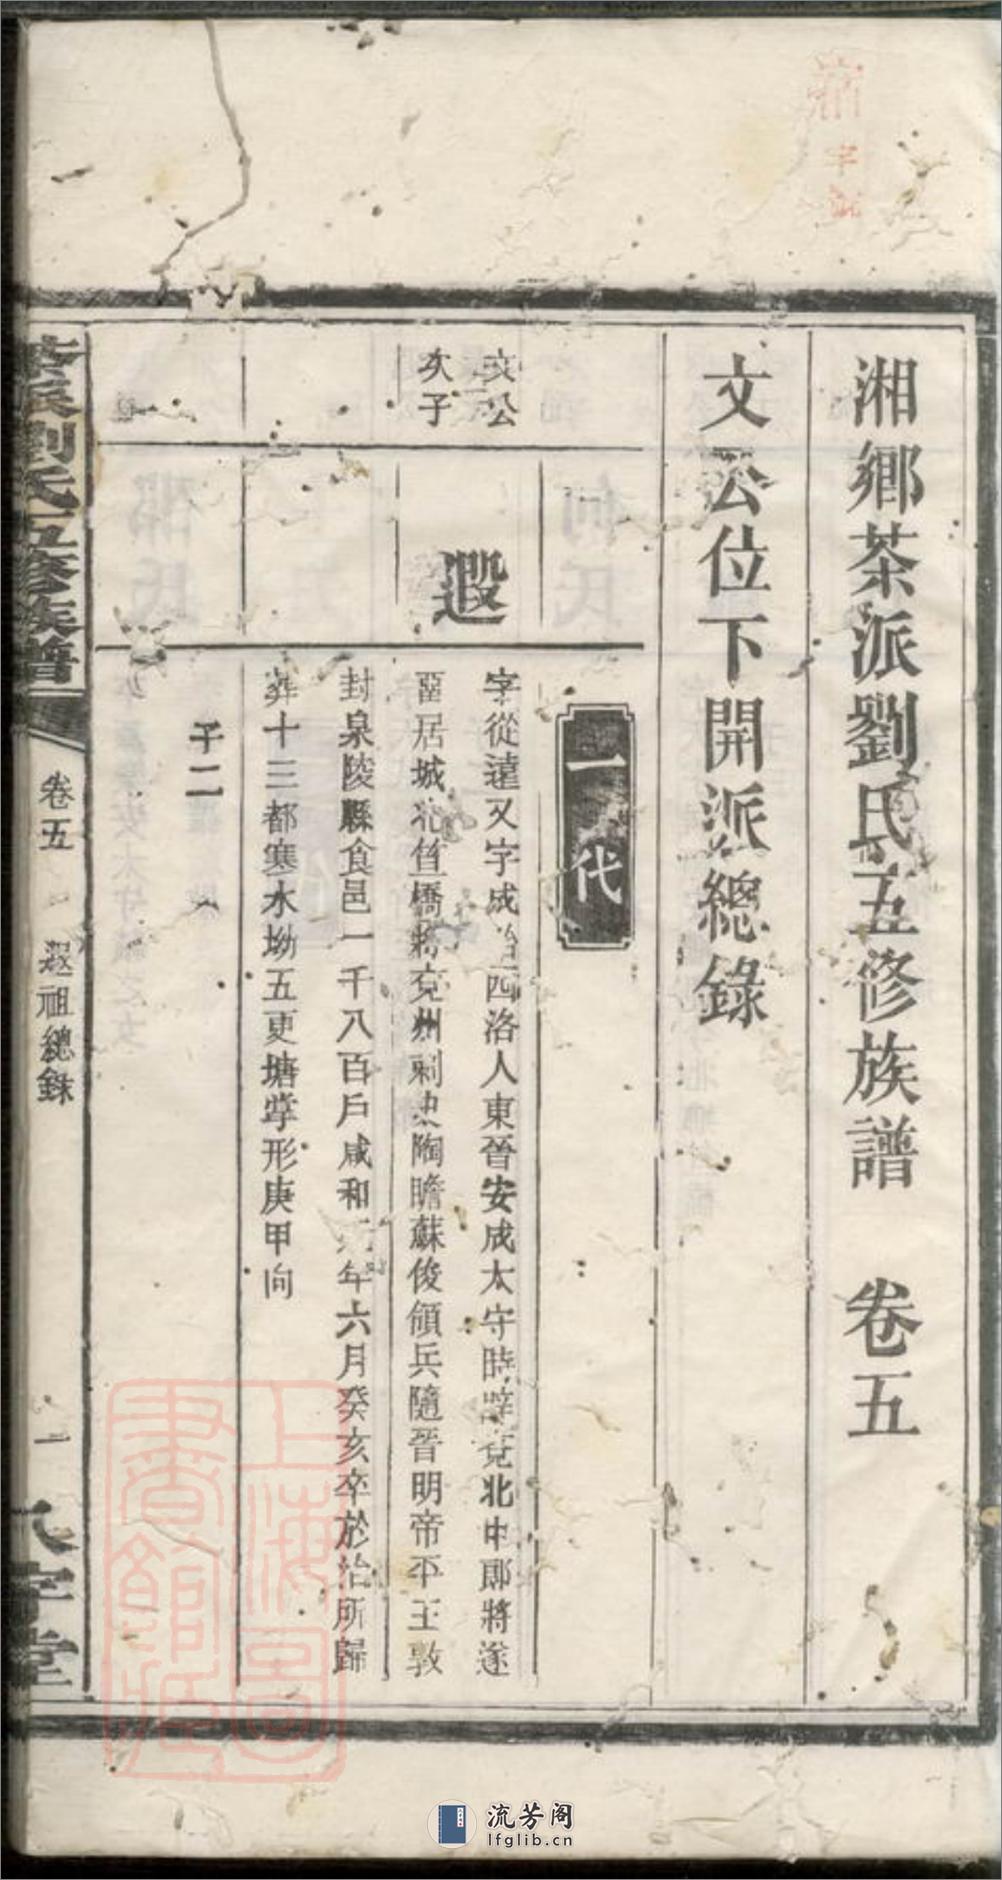 湘鄉茶派劉氏五修族譜 卷五
文公位下開派總錄
一代
文公
次子
遐
字從遠又字成 西洛人東晉安成太守時 北中郎將遂
居城北 橋 兗州刺史陶瞻蘇俊領兵隨晉明帝平王敦
封泉陵縣食邑一千八百戶咸和 年六月癸亥卒於治所歸
葬十三都寒水坳五更塘 形庚甲向
子二
劉氏五修族譜
卷五
遐祖總錄
一
字堂
上海圖
書館藏
流芳阁
lfglib.cn